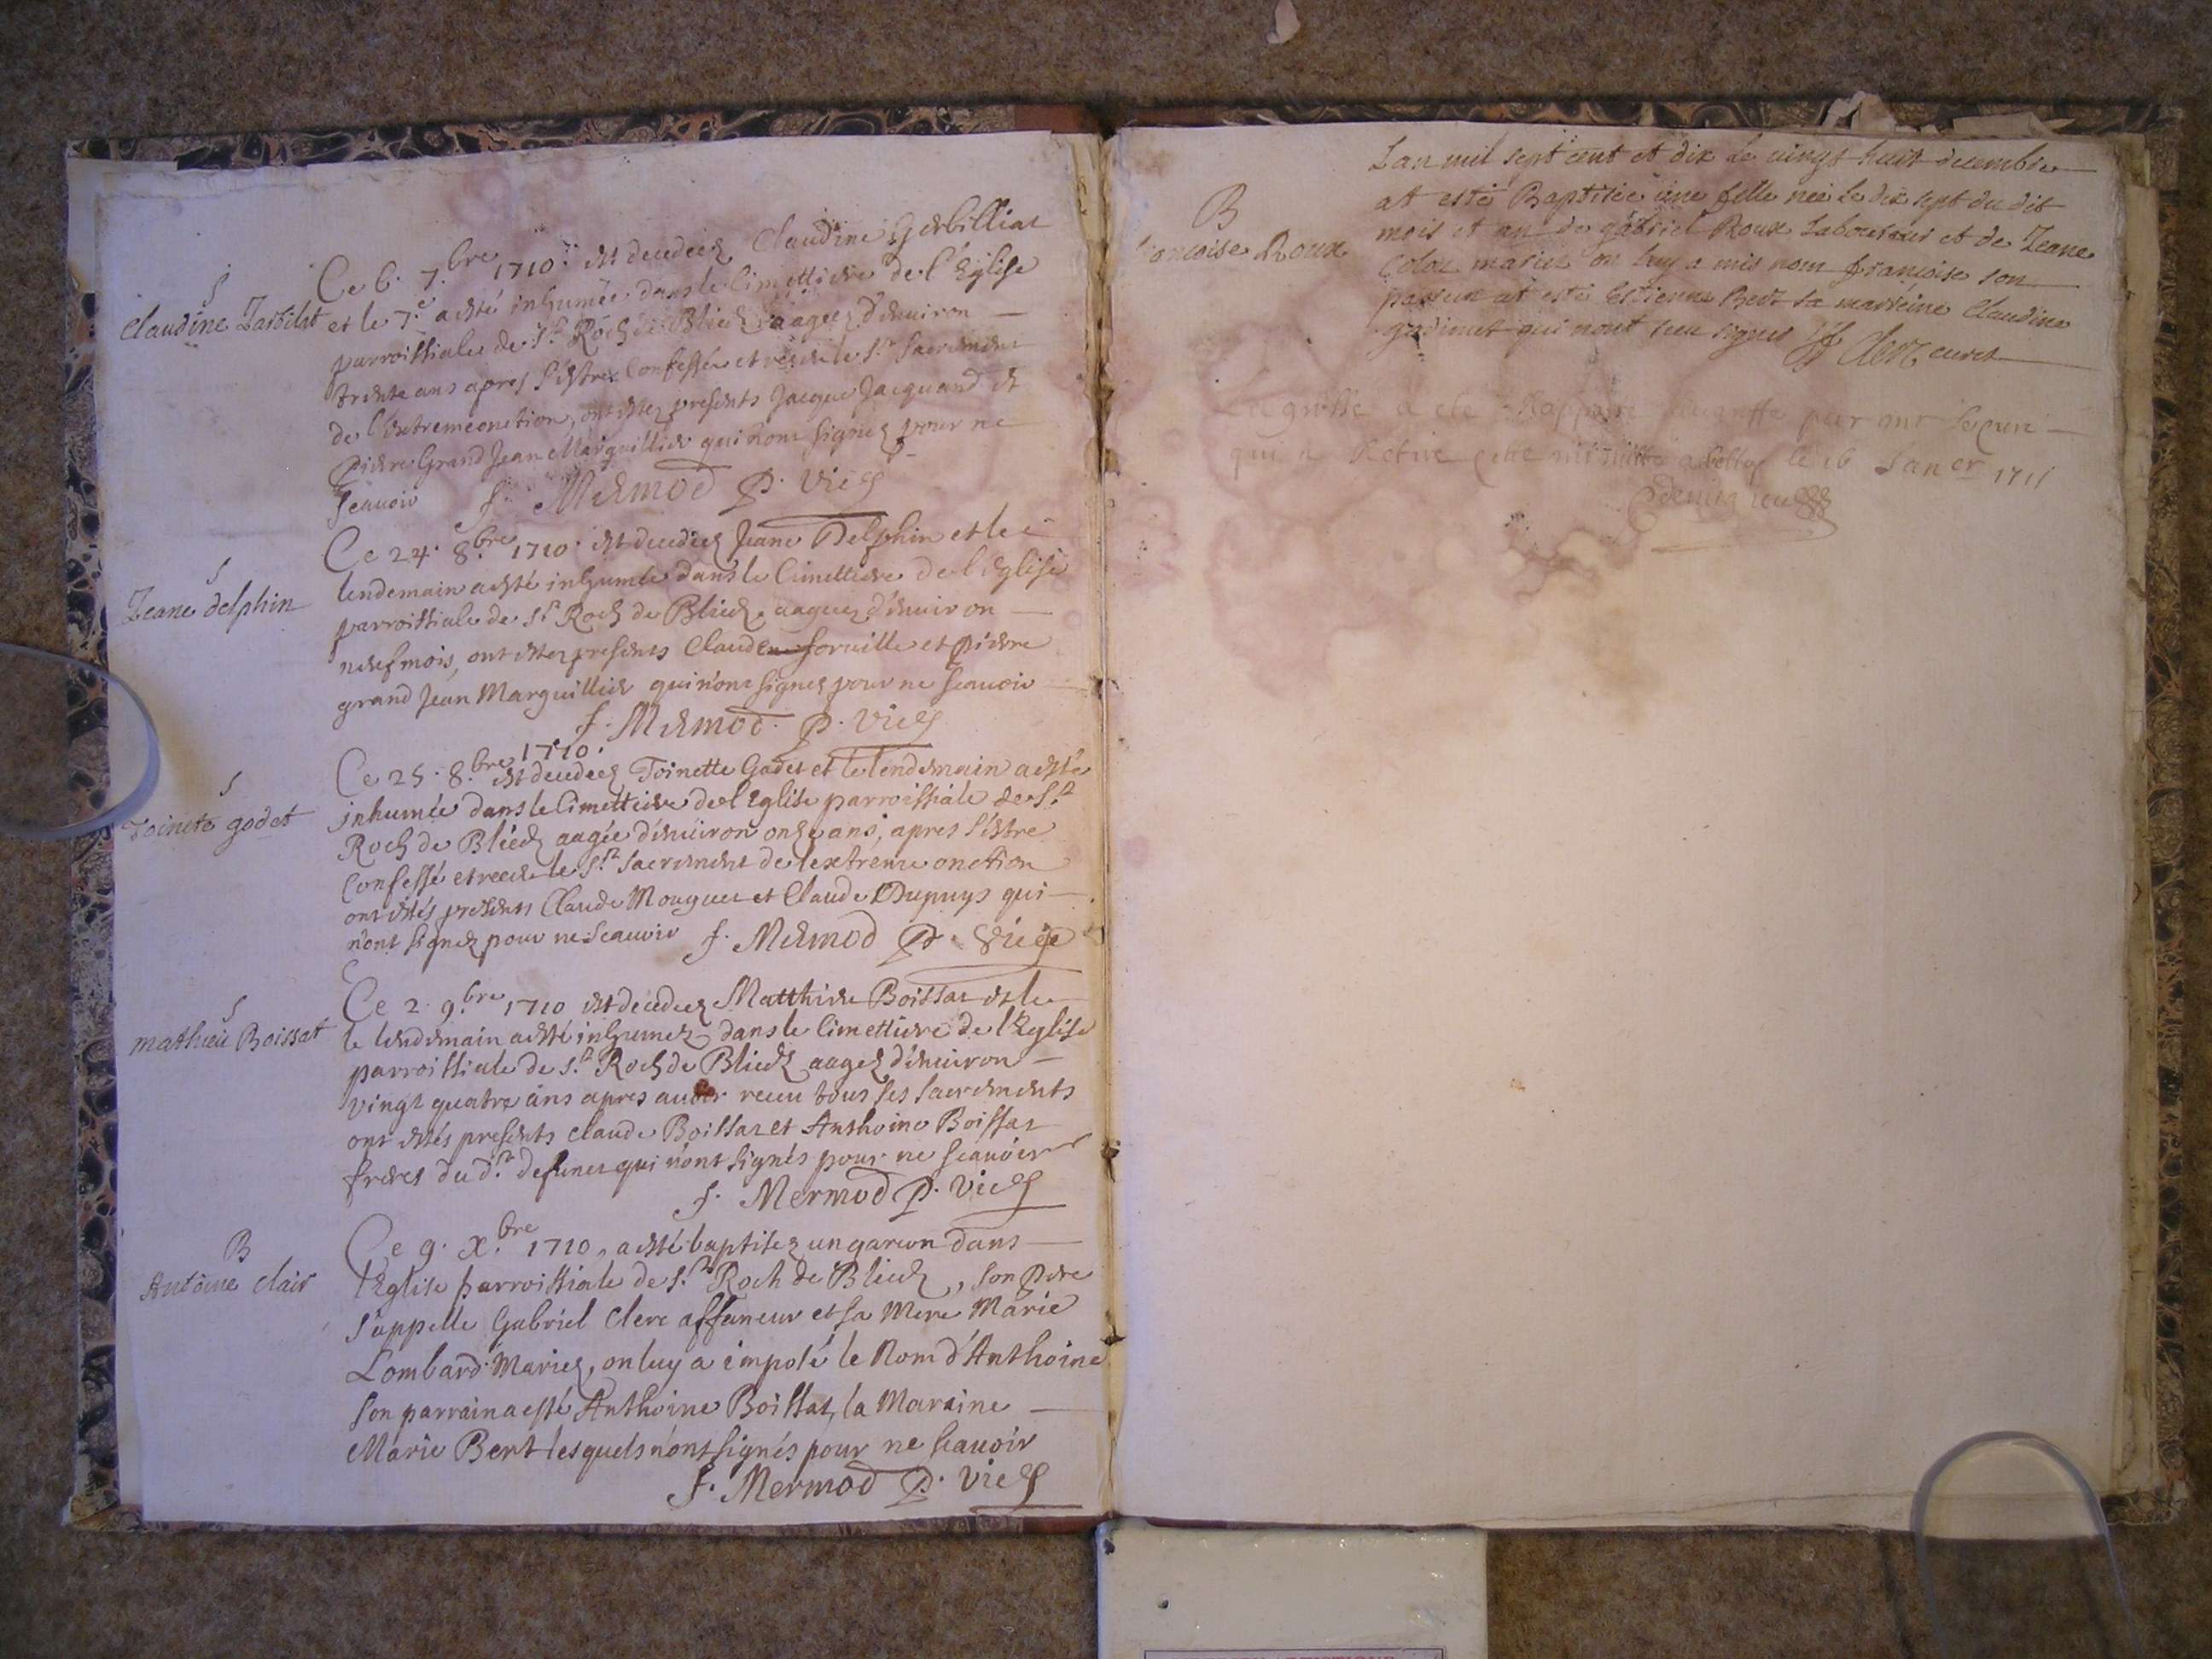 S
Claudine Jarbilat
Ce 6. 7.bre 1710. est decedeez Claudine Gerbilliat
et le 7.e a esté inhumée dans le Cimettiere de l'Eglise
parroissiale de St. Roch de Bliedz aagez d'environ
trente ans apres s'estre Confessée et receu le St. Sacrement
de l'extremeonction, ont estez presents Jacque Jacquand et
Pierre Grand Jean Marguillier qui n'ont signez pour ne
scauoir f. Mermod P. Vicq
S
Jeane delphin
Ce 24. 8.bre 1710. est decedeez Jeane Delphin et le
lendemain a esté inhumée dans le Cimettiere de l'Eglise
parroissiale de St. Roch de Bliedz aagez d'enuiron
neuf mois, ont estez presents Claude foruille et Pierre
grand Jean Marguillier qui n'ont signez pour ne scauoir
f. Mermod. P. Vicq
S
Toinete godet
Ce 25. 8.bre 1710. est decedeez Toinette Godet et le lendemain a esté
inhumée dans le Cimettiere de l'Eglise parroissiale de St.
Roch de Bliedz aagée d'enuiron onze ans, apres s'estre
Confessé et receu le St. Sacrement de l'extreme onction
ont estés presents Claude Mouguet et Claude Dupuys qui
n'ont signez pour ne scauoir f. Mermod P. Vicq
S
mathieu Boissat
Ce 2. 9.bre 1710 est decedez Matthieu Boissat et le
le lendemain a esté inhumez dans le Cimettiere de l'Eglise
parroissiale de St. Roch de Bliedz aagez d'enuiron
vingt quatre ans apres auoir receu tous ses sacrements
ont estés presents claude Boissat et Anthoine Boissat
freres du dt. defunct qui n'ont signés pour ne scauoir
f. Mermod P. Vicq
B
Antoine clair
Ce 9. X.bre 1710, a esté baptisez un garcon dans
l'Eglise parroissiale de St. Roch de Bliedz, son Pere
s'appelle Gabriel Clere affaneur et sa Mere Marie
Lombard Mariez, on luy a imposé le Nom d'Anthoine
son parrain a esté Anthoine Boissat, la Maraine
Marie Bert lesquels n'ont signés pour ne scauoir
f. Mermod P. Vicq
B
francoise Roux
Lan mil sept cent et dix le vingt huit decembre
at esté Baptisée une fille neé le dix sept du dit
mois et an de gabriel Roux Laboureur et de Jeane
Colon mariez on luy a mis nom françoise son
parrein at esté Estienne Bert sa marreine Claudine
gadinet qui nont sceu signer Clerc curé
La grosse a ete Rapporte au greffe par mr le curé
qui a Retire cette minutte a belley le 16 Janer 1711